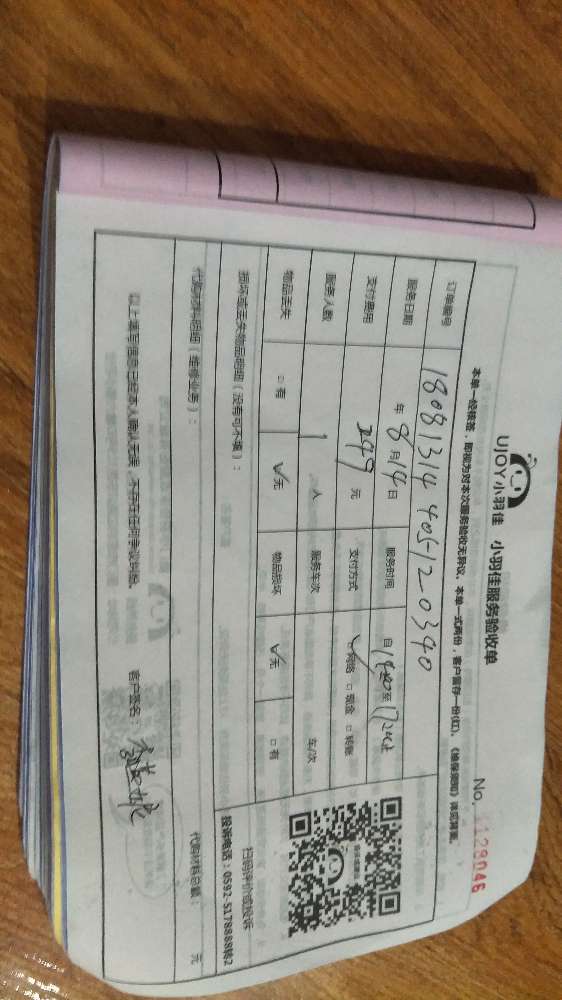 UJOY小羽佳 小羽佳服务验收单
No. 1129046
本单一经核签，即视为对本次服务验收无异议。本单一式两份，客户留存一份(红)。《维保须知》详见背面。
订单编号 18081314405120390
服务日期 年 8 月 14 日 服务时间 自 14:00 至
支付费用 249 元 支付方式 ☑网络 □现金 □转账
服务人数 1 人 服务车次 车/次
物品丢失 □有 ☑无 物品损坏 ☑无 □有
损坏或丢失物品明细（没有可不填）：
扫码评价或投诉
投诉电话：0592-5178888转2
代购材料明细（维修业务）： 代购材料总额： 元
以上填写信息已经本人确认无误，不存在任何争议纠纷。 客户签名：